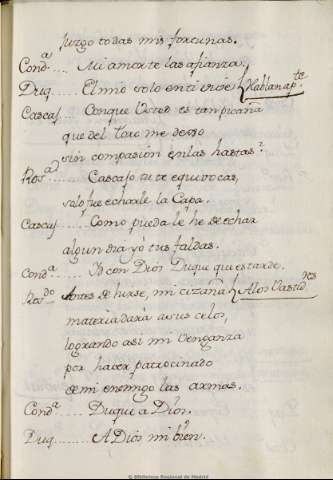 Juzgo todas mis fortunas.
Cond.ª .... Mi amor te las afianza.
Duq .... El mio solo en ti vive. Hablan ap.te
Cascaj ... Conque Usted es tan picaña
que del Toro me dexo
sin compasion en las hastas?
Ros.ª ..... Cascajo tu te equivocas,
solo fue echarle la Capa.
Cascaj .... Como pueda le he de echar
algun dia yo tus faldas.
Cond.ª .... Id con Dios Duque que es tarde.
R.do Antes de hirse, mi cizaña A los Bastid.res
materia dará a sus celos,
logrando asi mi venganza
por haver patrocinado
de mi enemigo las armas.
Cond.ª .... Duque a Dios.
Duq ....... A Dios mi bien.
© Biblioteca Regional de Madrid